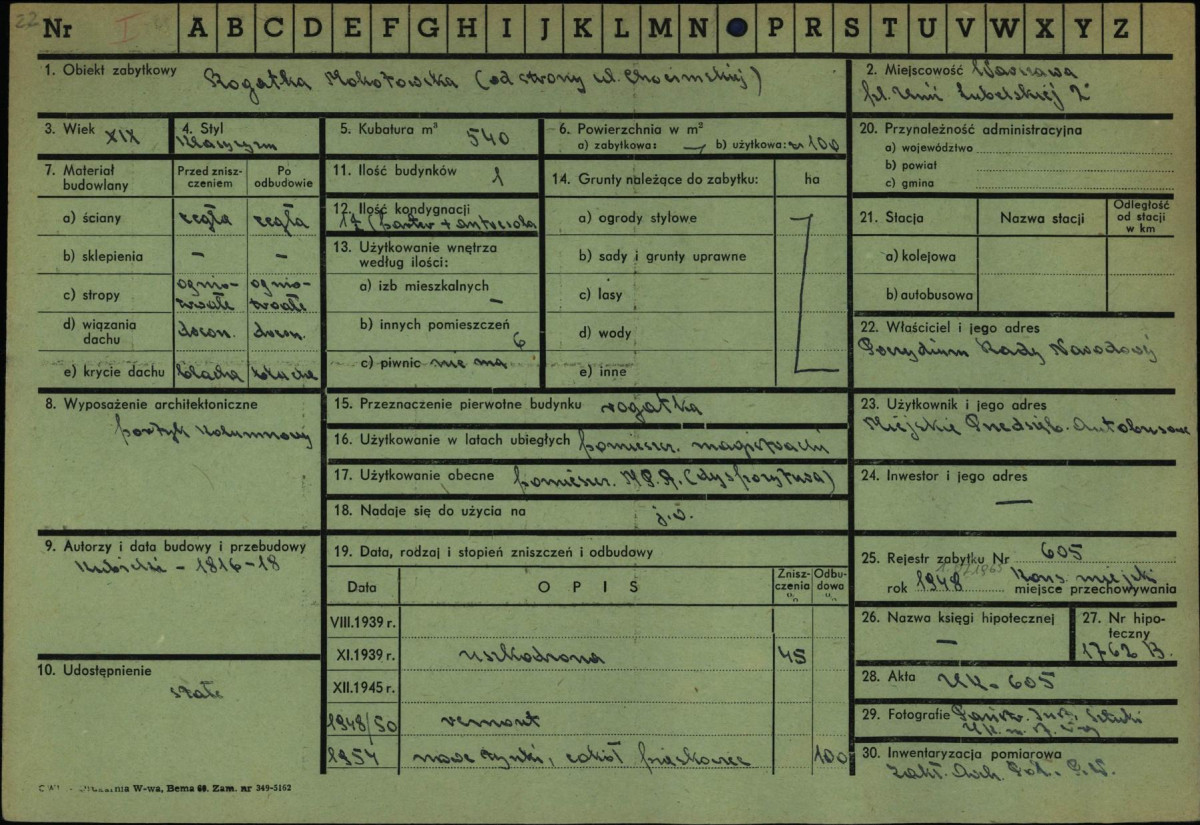 22
Nr I A B C D E F G H I J K L M N P R S T U V W X Y Z
1. Obiekt zabytkowy Rogatka Mokotowska (od strony ul. Chocimskiej)
2. Miejscowość Warszawa
pl. Unii Lubelskiej 2
3. Wiek XIX
4. Styl
klasycyzm
5. Kubatura m³ 540
6. Powierzchnia w m²
a) zabytkowa: — b) użytkowa: 100
20. Przynależność administracyjna
a) województwo
b) powiat
c) gmina
7. Materiał budowlany
Przed zniszczeniem
Po odbudowie
a) ściany cegła cegła
b) sklepienia – –
c) stropy ognio-trwałe ognio-trwałe
d) wiązania dachu drewn. drewn.
e) krycie dachu blacha blacha
11. Ilość budynków 1
12. Ilość kondygnacji
(parter + antresola
13. Użytkowanie wnętrza
według ilości:
a) izb mieszkalnych –
b) innych pomieszczeń 6
c) piwnic nie ma
14. Grunty należące do zabytku: ha
a) ogrody stylowe
b) sady i grunty uprawne
c) lasy
d) wody
e) inne
21. Stacja Nazwa stacji Odległość od stacji w km
a) kolejowa
b) autobusowa
22. Właściciel i jego adres
Prezydium Rady Narodowej
8. Wyposażenie architektoniczne
portyk kolumnowy
15. Przeznaczenie pierwotne budynku rogatka
16. Użytkowanie w latach ubiegłych pomieszcz. magistrackie
17. Użytkowanie obecne pomieszcz. M.P.A. (dyspozytura)
18. Nadaje się do użycia na j.w.
23. Użytkownik i jego adres
Miejskie Przedsięb. Autobusowe
24. Inwestor i jego adres
—
9. Autorzy i data budowy i przebudowy
Kubicki – 1816–18
10. Udostępnienie
stałe
19. Data, rodzaj i stopień zniszczeń i odbudowy
Data OPIS Zniszczenia % Odbudowa %
VIII.1939 r.
XI.1939 r. uszkodzona 45
XII.1945 r.
1948/50 remont
1954 nowe tynki, cokół piaskowiec 100
25. Rejestr zabytku Nr 605
1965
rok 1948 Kons. miejski
miejsce przechowywania
26. Nazwa księgi hipotecznej
–
27. Nr hipoteczny
1762 B.
28. Akta UK – 605
29. Fotografie Państw. Inst. Sztuki
30. Inwentaryzacja pomiarowa
Zakł. Arch. Pol. P.W.
W-wa, Bema 60. Zam. nr 349-5162